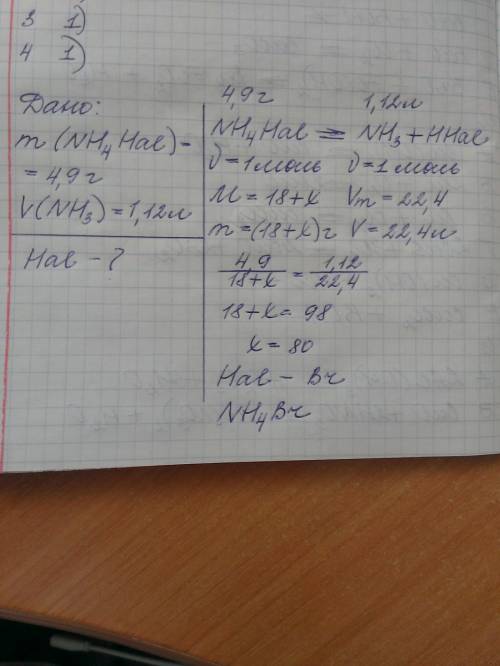 3 1)
4 1)
Дано:
m (NH₄Hal) =
= 4,9 г
V(NH₃) = 1,12 л
Hal - ?
4,9 г 1,12 л
NH₄Hal = NH₃ + HHal
ν = 1 моль ν = 1 моль
M = 18+x Vm = 22,4
m = (18+x) г V = 22,4 л
4,9 / 18+x = 1,12 / 22,4
18+x = 98
x = 80
Hal - Br
NH₄Br